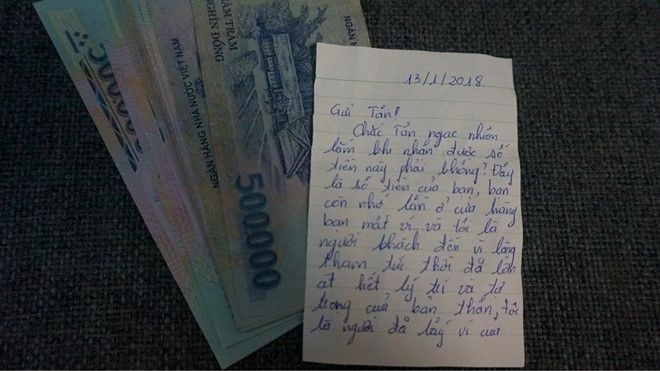 500.000
NGÂN HÀNG NHÀ NƯỚC VIỆT NAM
NĂM TRĂM
NGHÌN ĐỒNG
500.000
13/1/2018.
Gửi Tấn!
Chắc Tấn ngạc nhiên
lắm khi nhận được số
tiền này phải không? Đấy
là số tiền của bạn, bạn
còn nhớ lần ở cửa hàng
bạn mất ví và tôi là
người khách đến vì lòng
tham tức thời đã lấn
át hết lý trí và tự
trọng của bản thân, tôi
là người đã lấy ví của